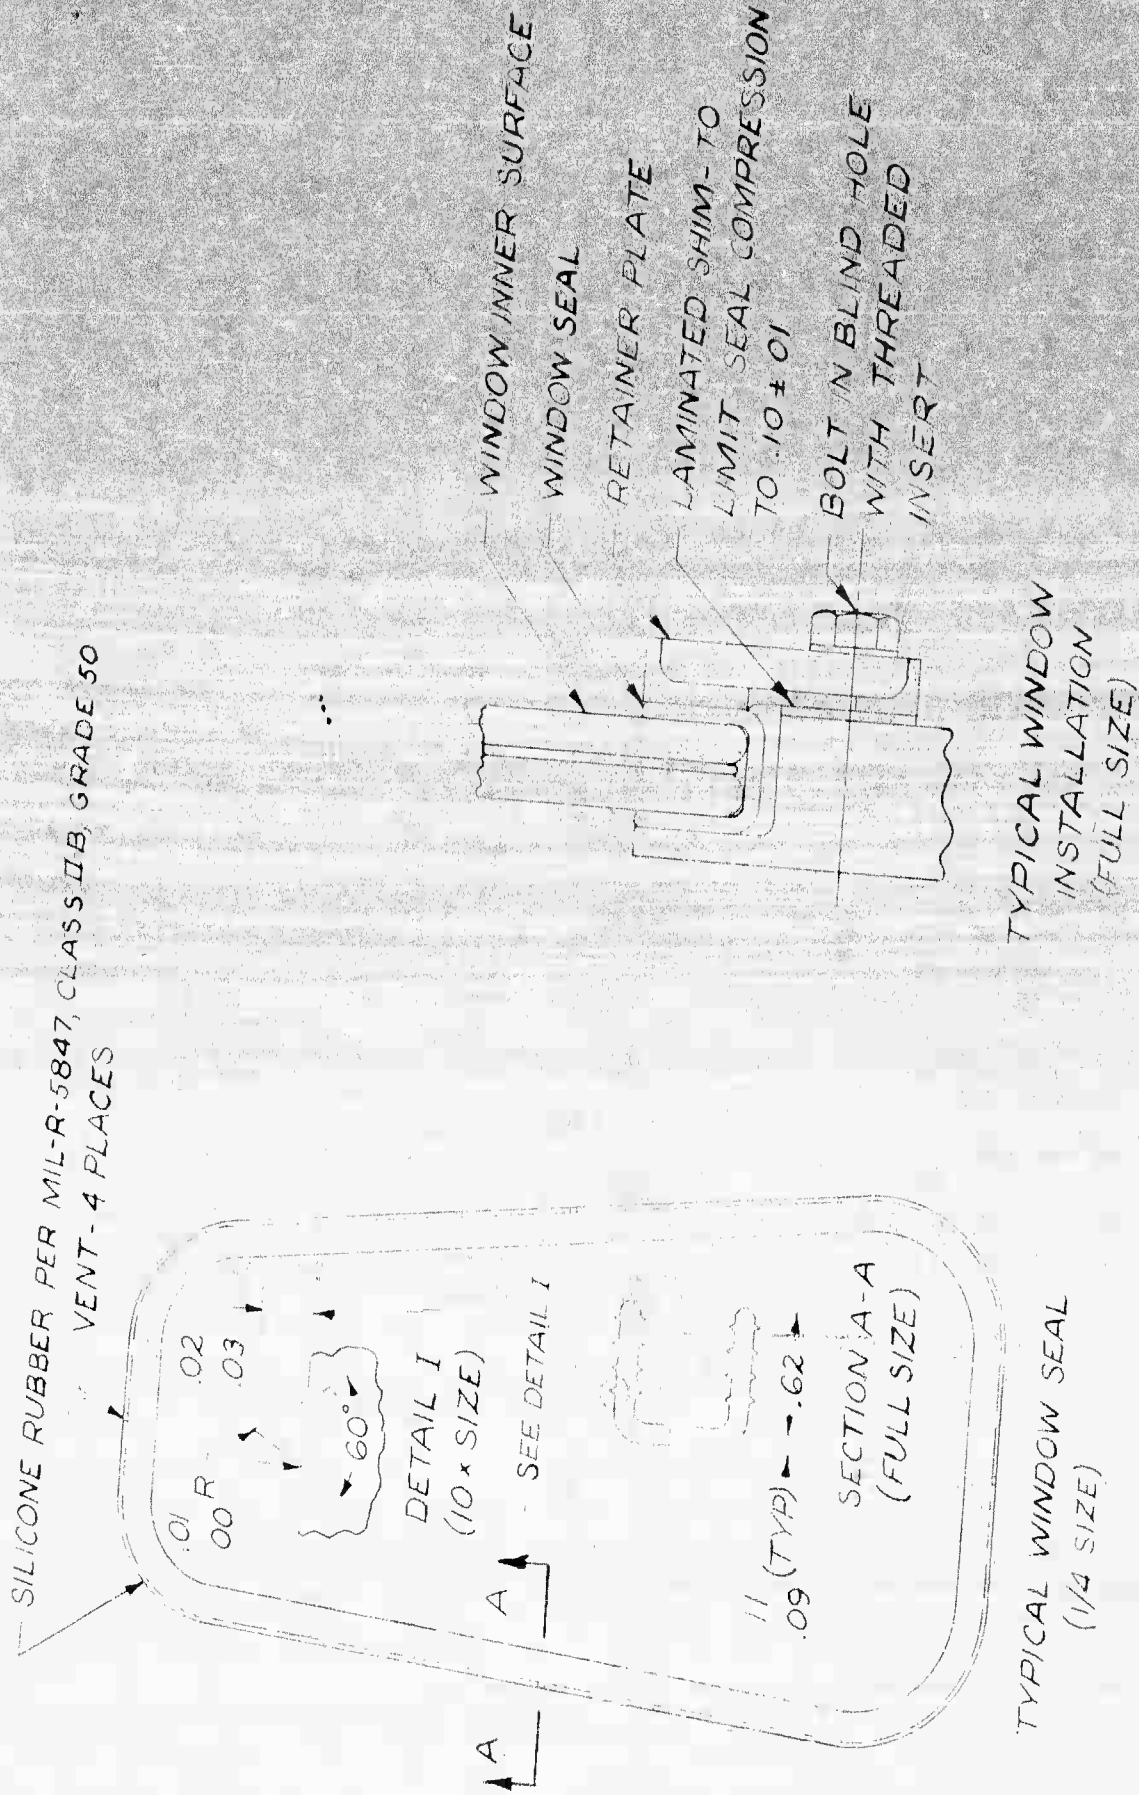 SILICONE RUBBER PER MIL-R-5847, CLASS IIB, GRADE 50
VENT - 4 PLACES
.01
.00 R
.02
.03
60°
DETAIL I
(10 x SIZE)
SEE DETAIL I
A
A
.11
.09 (TYP)
.62
SECTION A-A
(FULL SIZE)
TYPICAL WINDOW SEAL
(1/4 SIZE)
WINDOW INNER SURFACE
WINDOW SEAL
RETAINER PLATE
LAMINATED SHIM - TO
LIMIT SEAL COMPRESSION
TO .10 ± .01
BOLT IN BLIND HOLE
WITH THREADED
INSERT
TYPICAL WINDOW
INSTALLATION
(FULL SIZE)